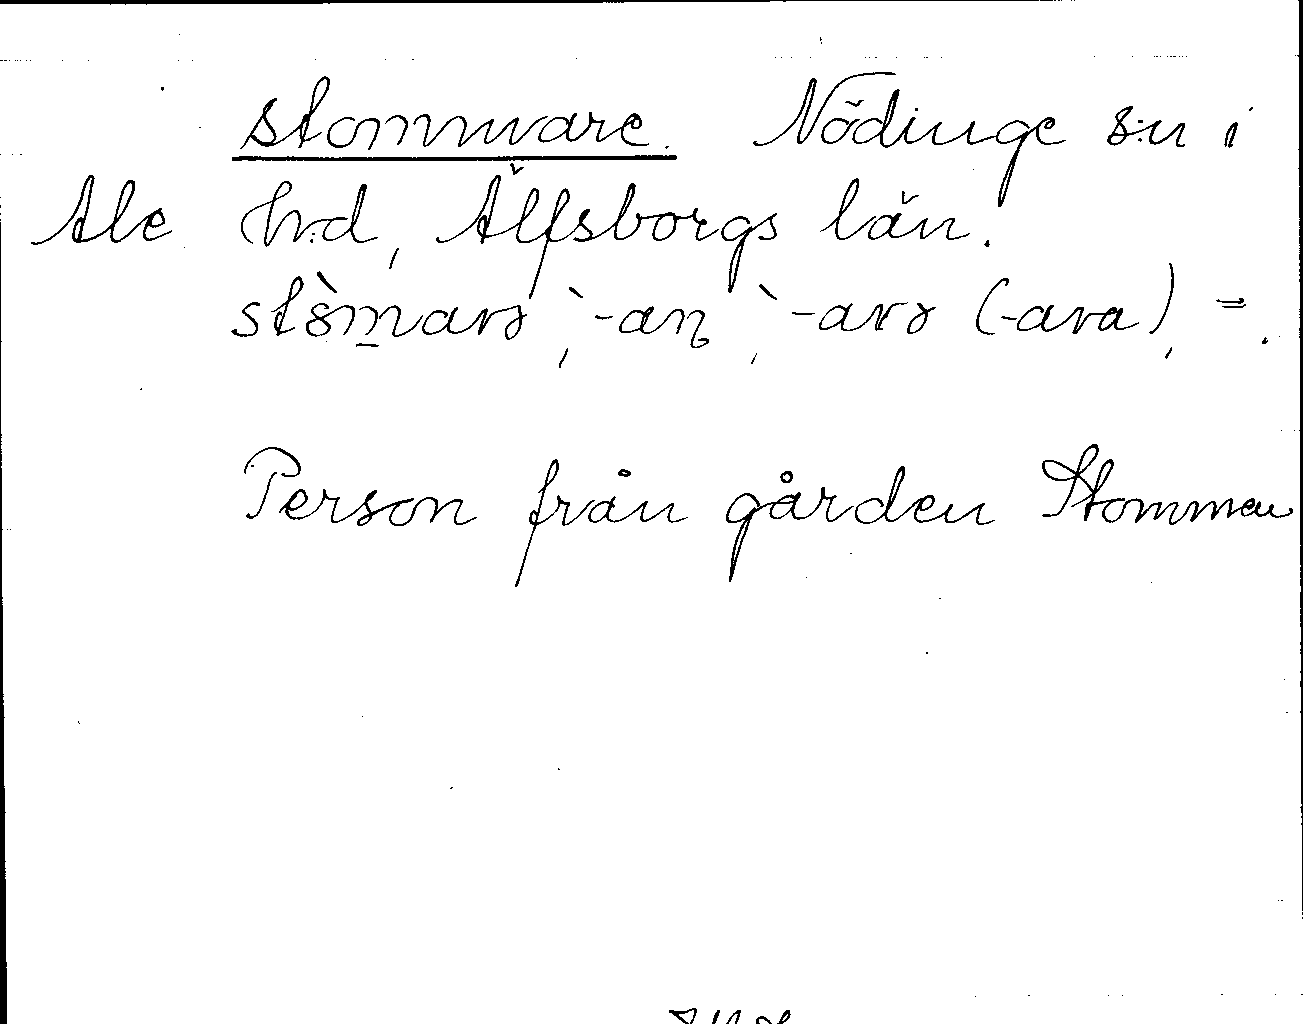 stommare. Nödinge s:n i
Ale h:d, Älfsborgs län.
-an -ara (-ara), =.
Person från gården Stommen